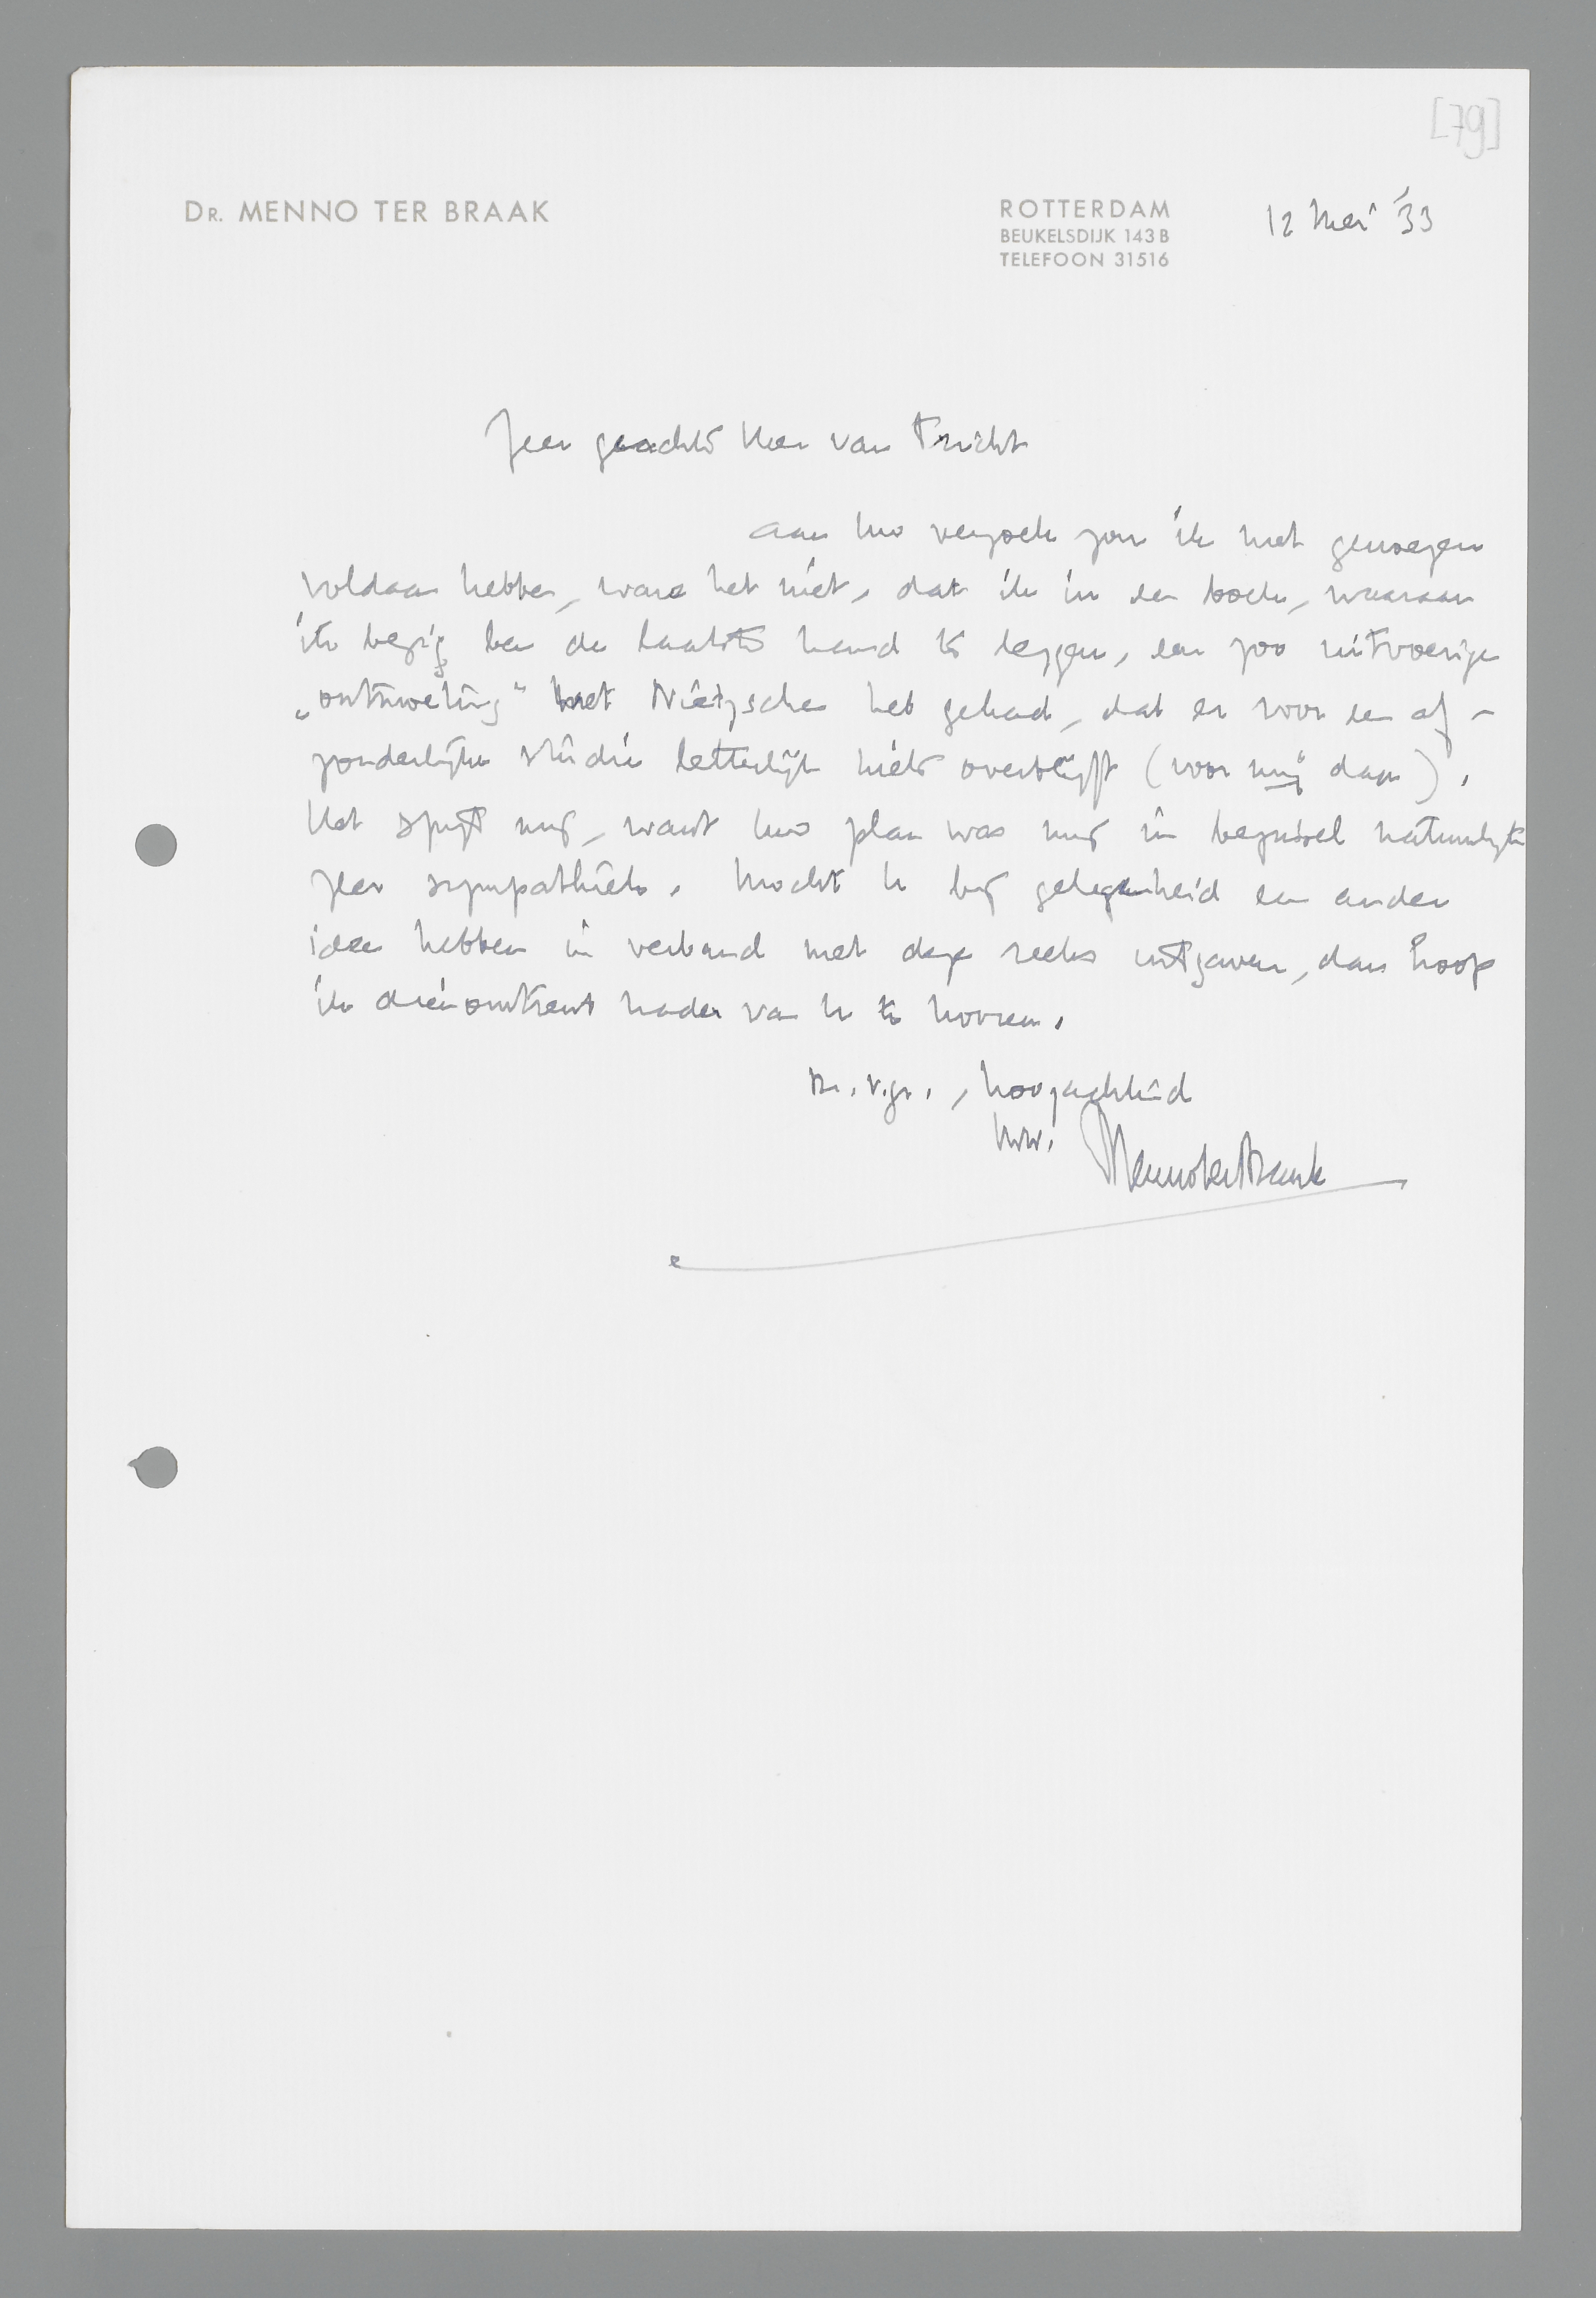 [79]
DR. MENNO TER BRAAK
ROTTERDAM
BEUKELSDIJK 143 B
TELEFOON 31516
12 Mei '33
Zeer geachte Heer van Tricht
Aan Uw verzoek zou ik met genoegen
voldaan hebben, ware het niet, dat ik in een boek, waaraan
ik bezig ben de laatste hand te leggen, een zoo uitvoerige
„ontmoeting" met Nietzsche heb gehad, dat er voor een af-
zonderlijke studie letterlijk niets overblijft (voor mij dan).
Het spijt mij, want Uw plan was mij in beginsel natuurlijk
zeer sympathiek. Mocht U bij gelegenheid een ander
idee hebben in verband met deze reeks uitgaven, dan hoop
ik dienomtrent nader van U te hooren.
m. v. gr., hoogachtend
Uw.
Menno ter Braak